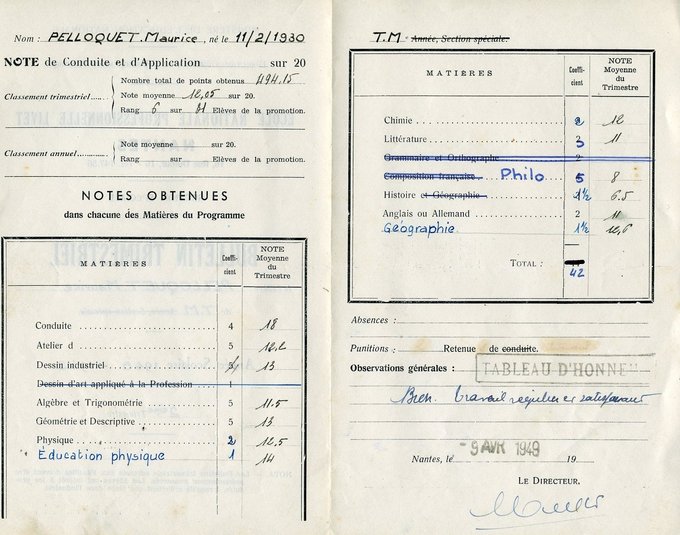 Nom : PELLOQUET. Maurice, né le 11/2/1930
NOTE de Conduite et d'Application sur 20
Classement trimestriel......
Nombre total de points obtenus 494.15
Note moyenne 12,05 sur 20.
Rang 6 sur 21 Elèves de la promotion.
Classement annuel.....
Note moyenne sur 20.
Rang sur Elèves de la promotion.
NOTES OBTENUES
dans chacune des Matières du Programme
MATIÈRES Coefficient NOTE Moyenne du Trimestre
Conduite 4 18
Atelier d 5 12.2
Dessin industriel 5 13
Dessin d'art appliqué à la Profession 1
Algèbre et Trigonométrie 5 11.5
Géométrie et Descriptive 5 13
Physique 2 12,5
Éducation physique 1 14
T.M Année, Section spéciale.
MATIÈRES Coefficient NOTE Moyenne du Trimestre
Chimie 2 12
Littérature 3 11
Grammaire et Orthographe 2
Composition française Philo 5 8
Histoire et Géographie 1½ 6.5
Anglais ou Allemand 2 11
Géographie 1½ 12,6
TOTAL :
42
Absences :
Punitions : Retenue de conduite.
Observations générales : TABLEAU D'HONNEUR
Bien. travail régulier et satisfaisant
Nantes, le -9 AVR 1949 19
LE DIRECTEUR.